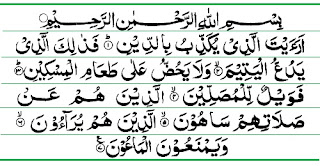 بِسْمِ اللهِ الرَّحْمٰنِ الرَّحِيْمِ
اَرَءَيْتَ الَّذِىْ يُكَذِّبُ بِالدِّيْنِ ۝۱ فَذٰلِكَ الَّذِىْ
يَدُعُّ الْيَتِيْمَ ۝۲ وَلَا يَحُضُّ عَلٰى طَعَامِ الْمِسْكِيْنِ ۝۳
فَوَيْلٌ لِّلْمُصَلِّيْنَ ۝۴ الَّذِيْنَ هُمْ عَنْ
صَلَاتِهِمْ سَاهُوْنَ ۝۵ الَّذِيْنَ هُمْ يُرَآءُوْنَ ۝۶
وَيَمْنَعُوْنَ الْمَاعُوْنَ ۝۷